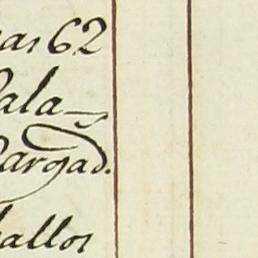 as 62
ala
argad.
allos